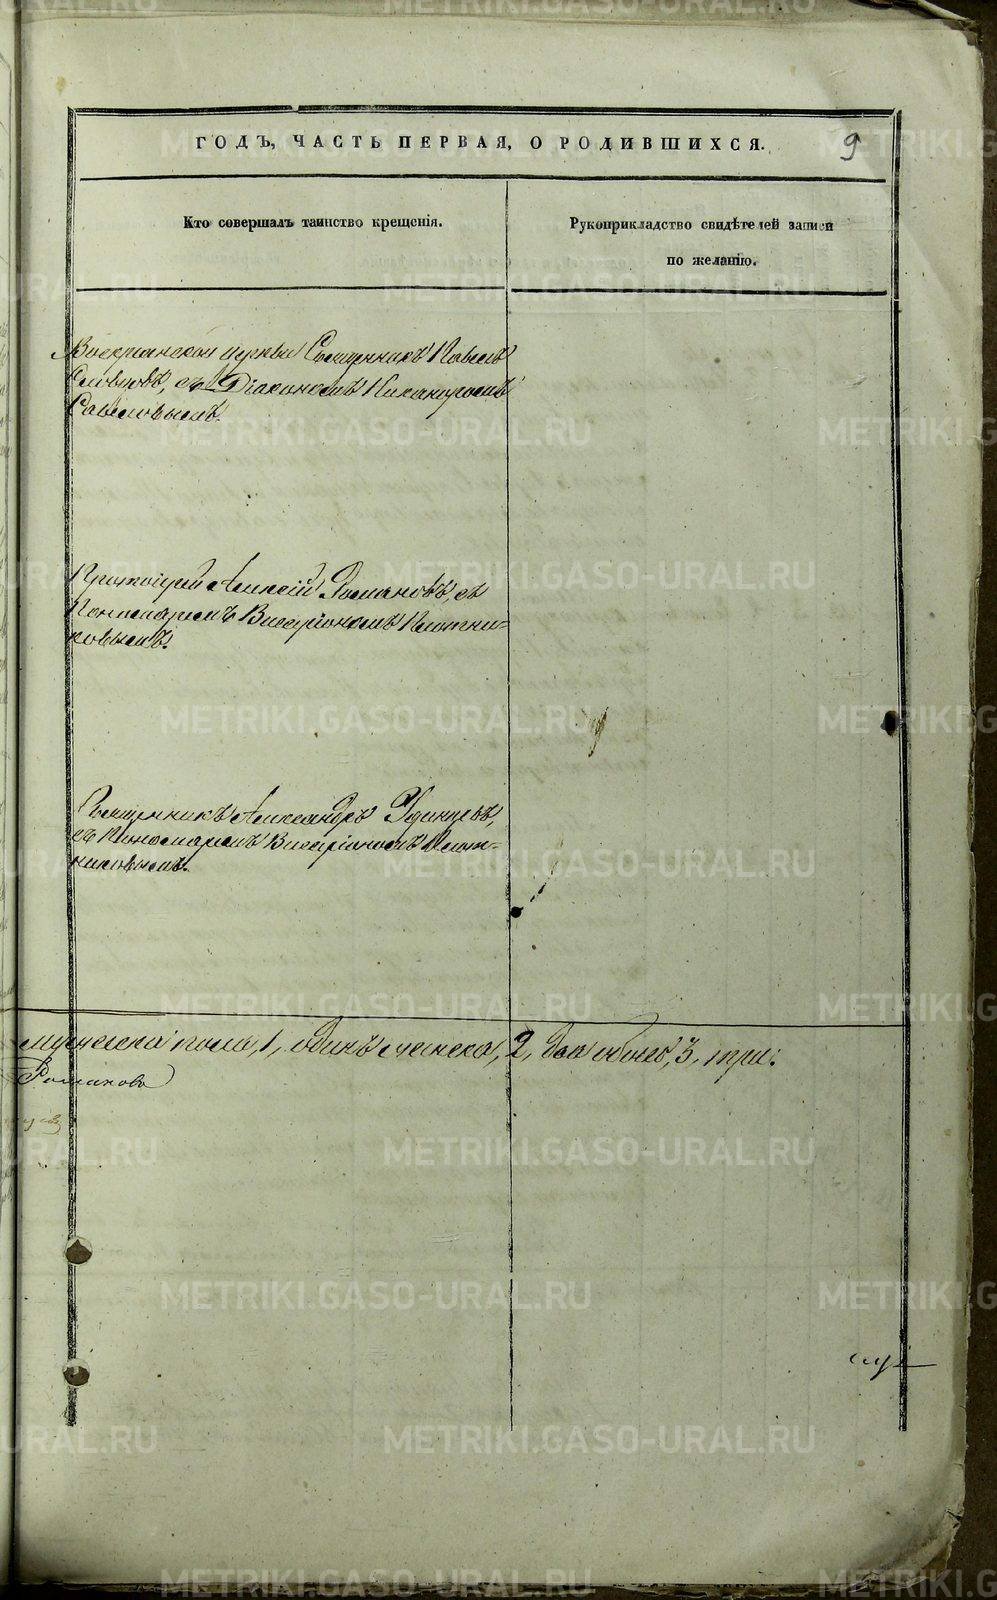 ГОДЪ, ЧАСТЬ ПЕРВАЯ, О РОДИВШИХСЯ.
9
Кто совершалъ таинство крещенія.
Рукоприкладство свидѣтелей записи
по желанію.
церкви Священникъ Павелъ
съ Діакономъ Никаноромъ
Протоіерей Алексій Романовъ, съ
Пономаремъ Висаріономъ Плотни-
ковымъ.
Священникъ Александръ Удинцевъ,
съ Пономаремъ Висаріономъ Плот-
никовымъ.
мужеска пола, 1, одинъ женска, 2, два обоего, 3, три.
Романовъ
METRIKI.GASO-URAL.RU